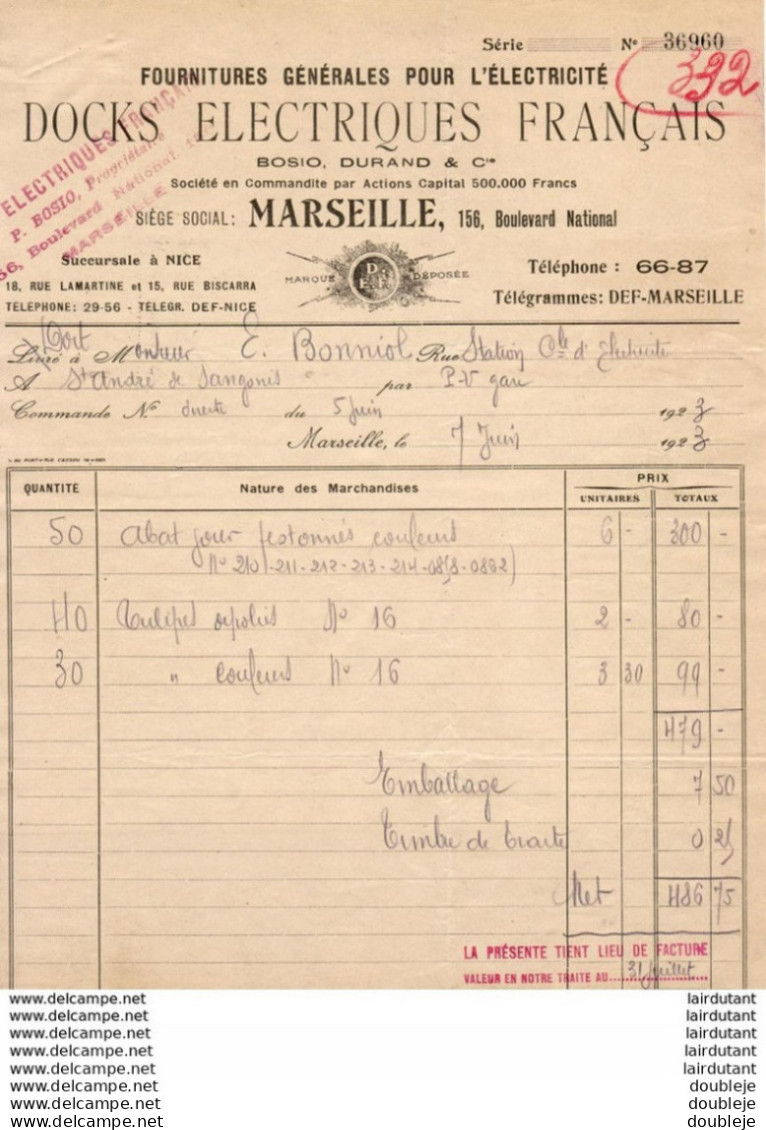 Série N° 36960
392
FOURNITURES GÉNÉRALES POUR L'ÉLECTRICITÉ
DOCKS ELECTRIQUES FRANÇAIS
BOSIO, DURAND & Cie
Société en Commandite par Actions Capital 500.000 Francs
SIÈGE SOCIAL: MARSEILLE, 156, Boulevard National
ELECTRIQUES FRANÇAI
P. BOSIO, Propriétaire
56, Boulevard National, 1
MARSEILLE
Succursale à NICE
18, RUE LAMARTINE et 15, RUE BISCARRA
TÉLÉPHONE: 29-56 - TÉLÉGR. DEF-NICE
MARQUE DÉPOSÉE
Téléphone : 66-87
Télégrammes: DEF-MARSEILLE
Doit
Livré à Monsieur E. Bonniol Rue Station Cle d'Electricité
A St André de Sangonis par P.V gare
Commande N° directe du 5 juin 1923
Marseille, le 7 Juin 1923
QUANTITE Nature des Marchandises PRIX
UNITAIRES TOTAUX
50 Abat jour festonnés couleurs 6 - 300 -
N° 210-211-212-213-214-
40 Tulipes dépolies N° 16 2 - 80 -
30 " couleurs N° 16 3 30 99 -
479 -
Emballage 7 50
Timbre de traite 0 25
Net 486 75
LA PRÉSENTE TIENT LIEU DE FACTURE
VALEUR EN NOTRE TRAITE AU 31 juillet
www.delcampe.net lairdutant
www.delcampe.net lairdutant
www.delcampe.net lairdutant
www.delcampe.net lairdutant
www.delcampe.net lairdutant
www.delcampe.net doubleje
www.delcampe.net doubleje
www.delcampe.net doubleje